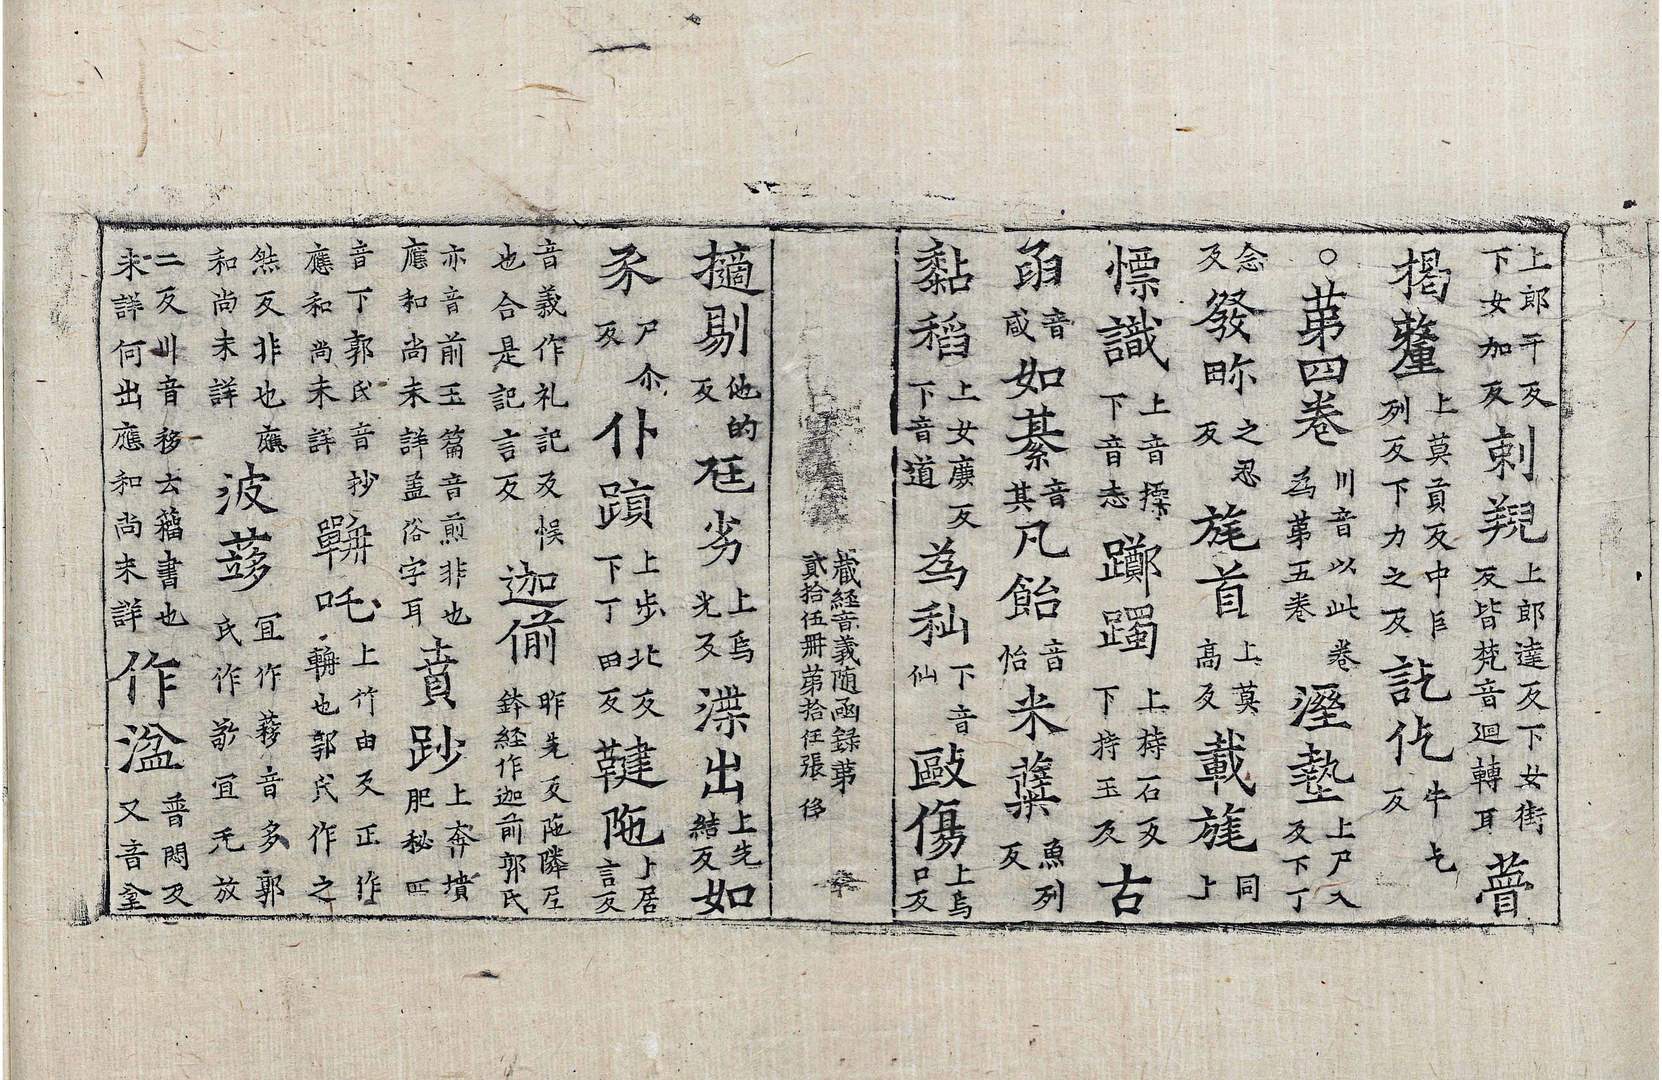 上郎干反下女加反剌㨢上郎達反下女街反皆梵音迴轉耳瞢
揭𨯳上莫貢反中丘列反下力之反訖仡牛乞反
○苐四卷川音以此卷為苐五卷溼墊上尸入反下丁
念反發眕之忍反旄首上莫高反載旄上同
慓識上音摽下音志躑躅上持石反下持玉反古
函音咸如綦音其凡飴音怡米糵魚列反
黏稻上女廉反下音道為秈下音仙毆傷上烏口反
藏經音義随函録苐
貳拾伍冊苐拾伍張
擿剔他的反尫劣上烏光反渫出上先結反如
豕尸尒反仆蹎上步北反下丁田反鞬陁上居言反
音義作礼記及悮也合是記言反迦偂昨先反陁隣尼鉢經作迦前郭氏
亦音前玉篇音煎非也應和尚未詳盖俗字耳賁䟞上奔墳肥秘四
音下郭氏音抄應和尚未詳䩼吒上竹由反正作輈也郭氏作之
然反非也應和尚未詳波䔟冝作䔟音多郭氏作𢾭冝旡放
二反川音移去䈕書也未詳何出應和尚未詳作湓普悶反又音盆